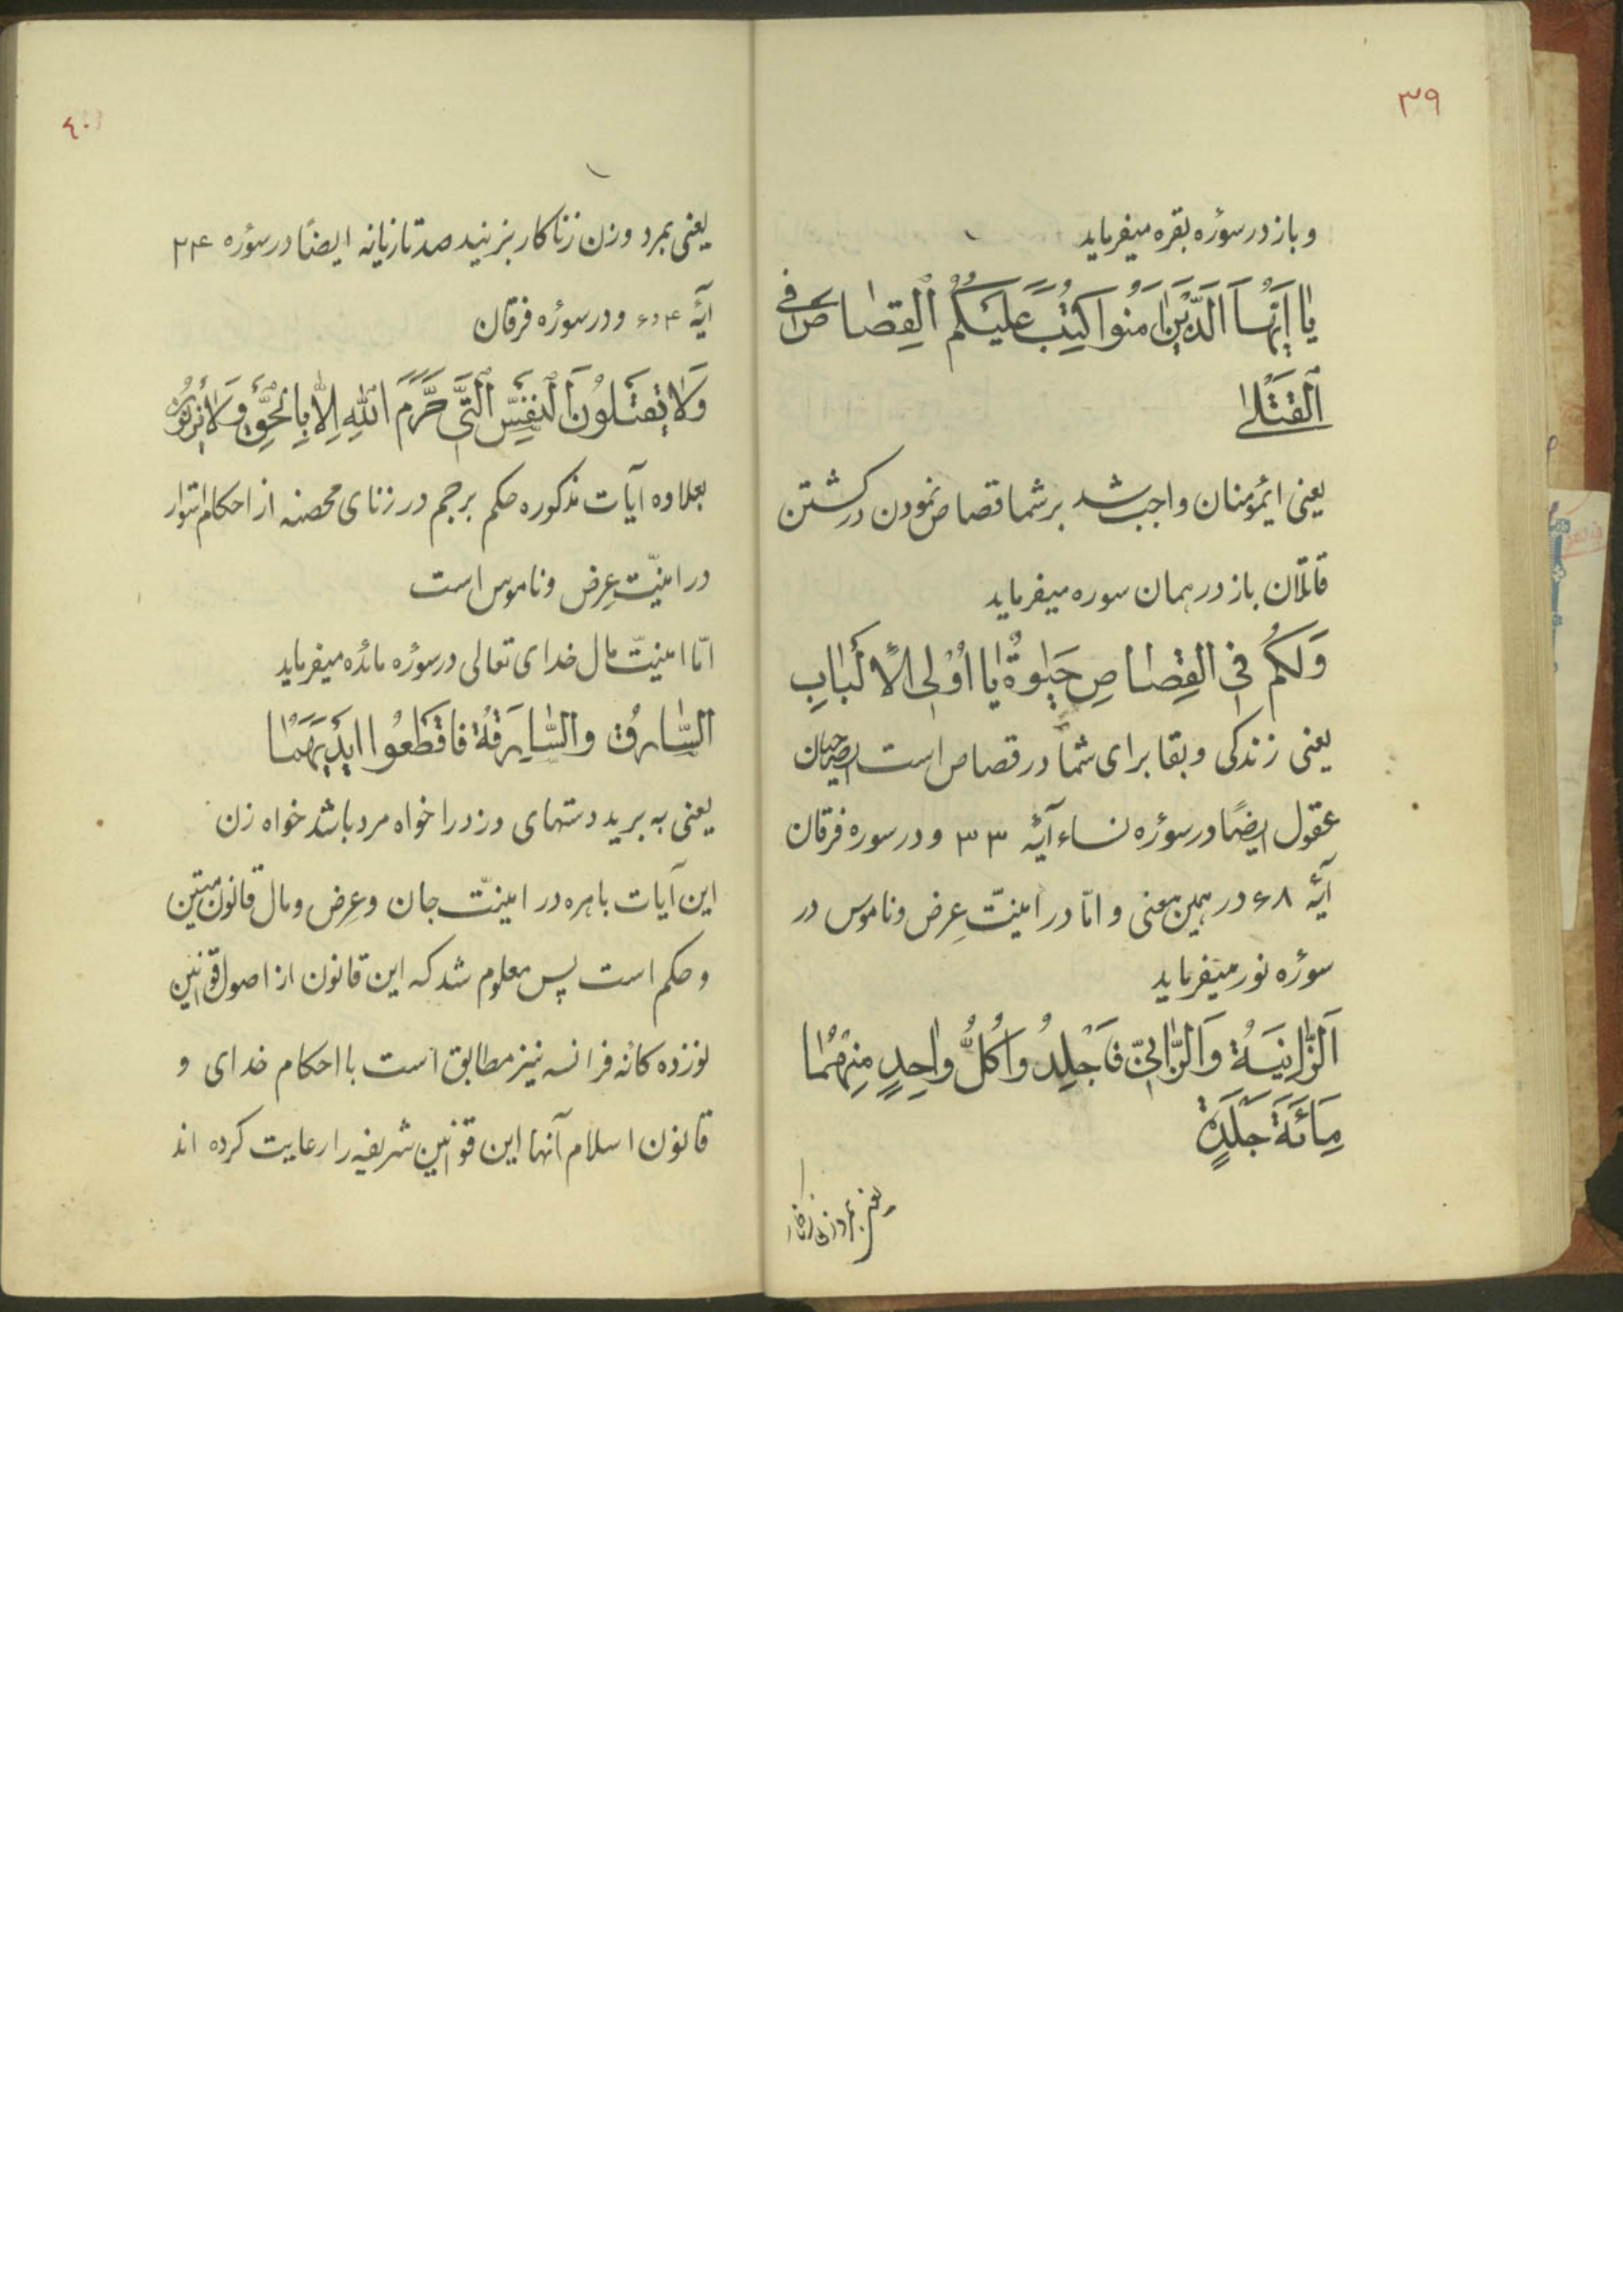 ۳۹
و باز در سؤره بقره میفرماید
یا اَیُّهَا الَّذینَ امَنُوا کُتِبَ عَلَیْکُمُ القِصاص فی
القَتْلی
یعنی ایمؤمنان واجب شد بر شما قصاص نمودن در کشتن
قاتلان باز در همان سوره میفرماید
وَلَکُم فِی القِصاصِ حَیٰوةٌ یا اُوْلِی الاَلْبابِ
یعنی زندکی و بقا برای شما در قصاص است ایصاحبان
عقول ایضًا در سؤره نساء آیهٔ ۳۳ و در سوره فرقان
آیهٔ ۶۸ در همین معنی و امّا در امنیّت عِرض و ناموس در
سؤره نور میفرماید
اَلزّانِیَةُ وَالزّانی فَاجْلِدُوا کُلَّ واحِدٍ مِنْهُما
مِائَةَ جَلْدَةٍ
یعنی بمرد و زن زناکار
٤۰
یعنی بمرد و زن زناکار بزنید صد تازیانه ایضًا در سؤره ۲۴
آیهٔ ۴ و ۶ و در سؤره فرقان
وَلا یَقتُلُونَ النَفْسَ الَّتی حَرَّمَ اللهِ اِلّا بِالحَقِّ وَلا یَزنُونَ
بعلاوه آیات مذکوره حکم برجم در زنای محصنه از احکام استوار
در امنیّت عِرض و ناموس است
امّا امنیّت مال خدای تعالی در سؤره مائده میفرماید
السّارِق والسّارِقَةُ فاقطَعُوا ایدِیَهُما
یعنی به برید دستهای دزد را خواه مرد باشد خواه زن
این آیات باهره در امنیّت جان و عِرض و مال قانون متین
و حکم است پس معلوم شد که این قانون از اصول قوانین
نوزده کانه فرانسه نیز مطابق است با احکام خدای و
قانون اسلام آنها این قوانین شریفه را رعایت کرده اند